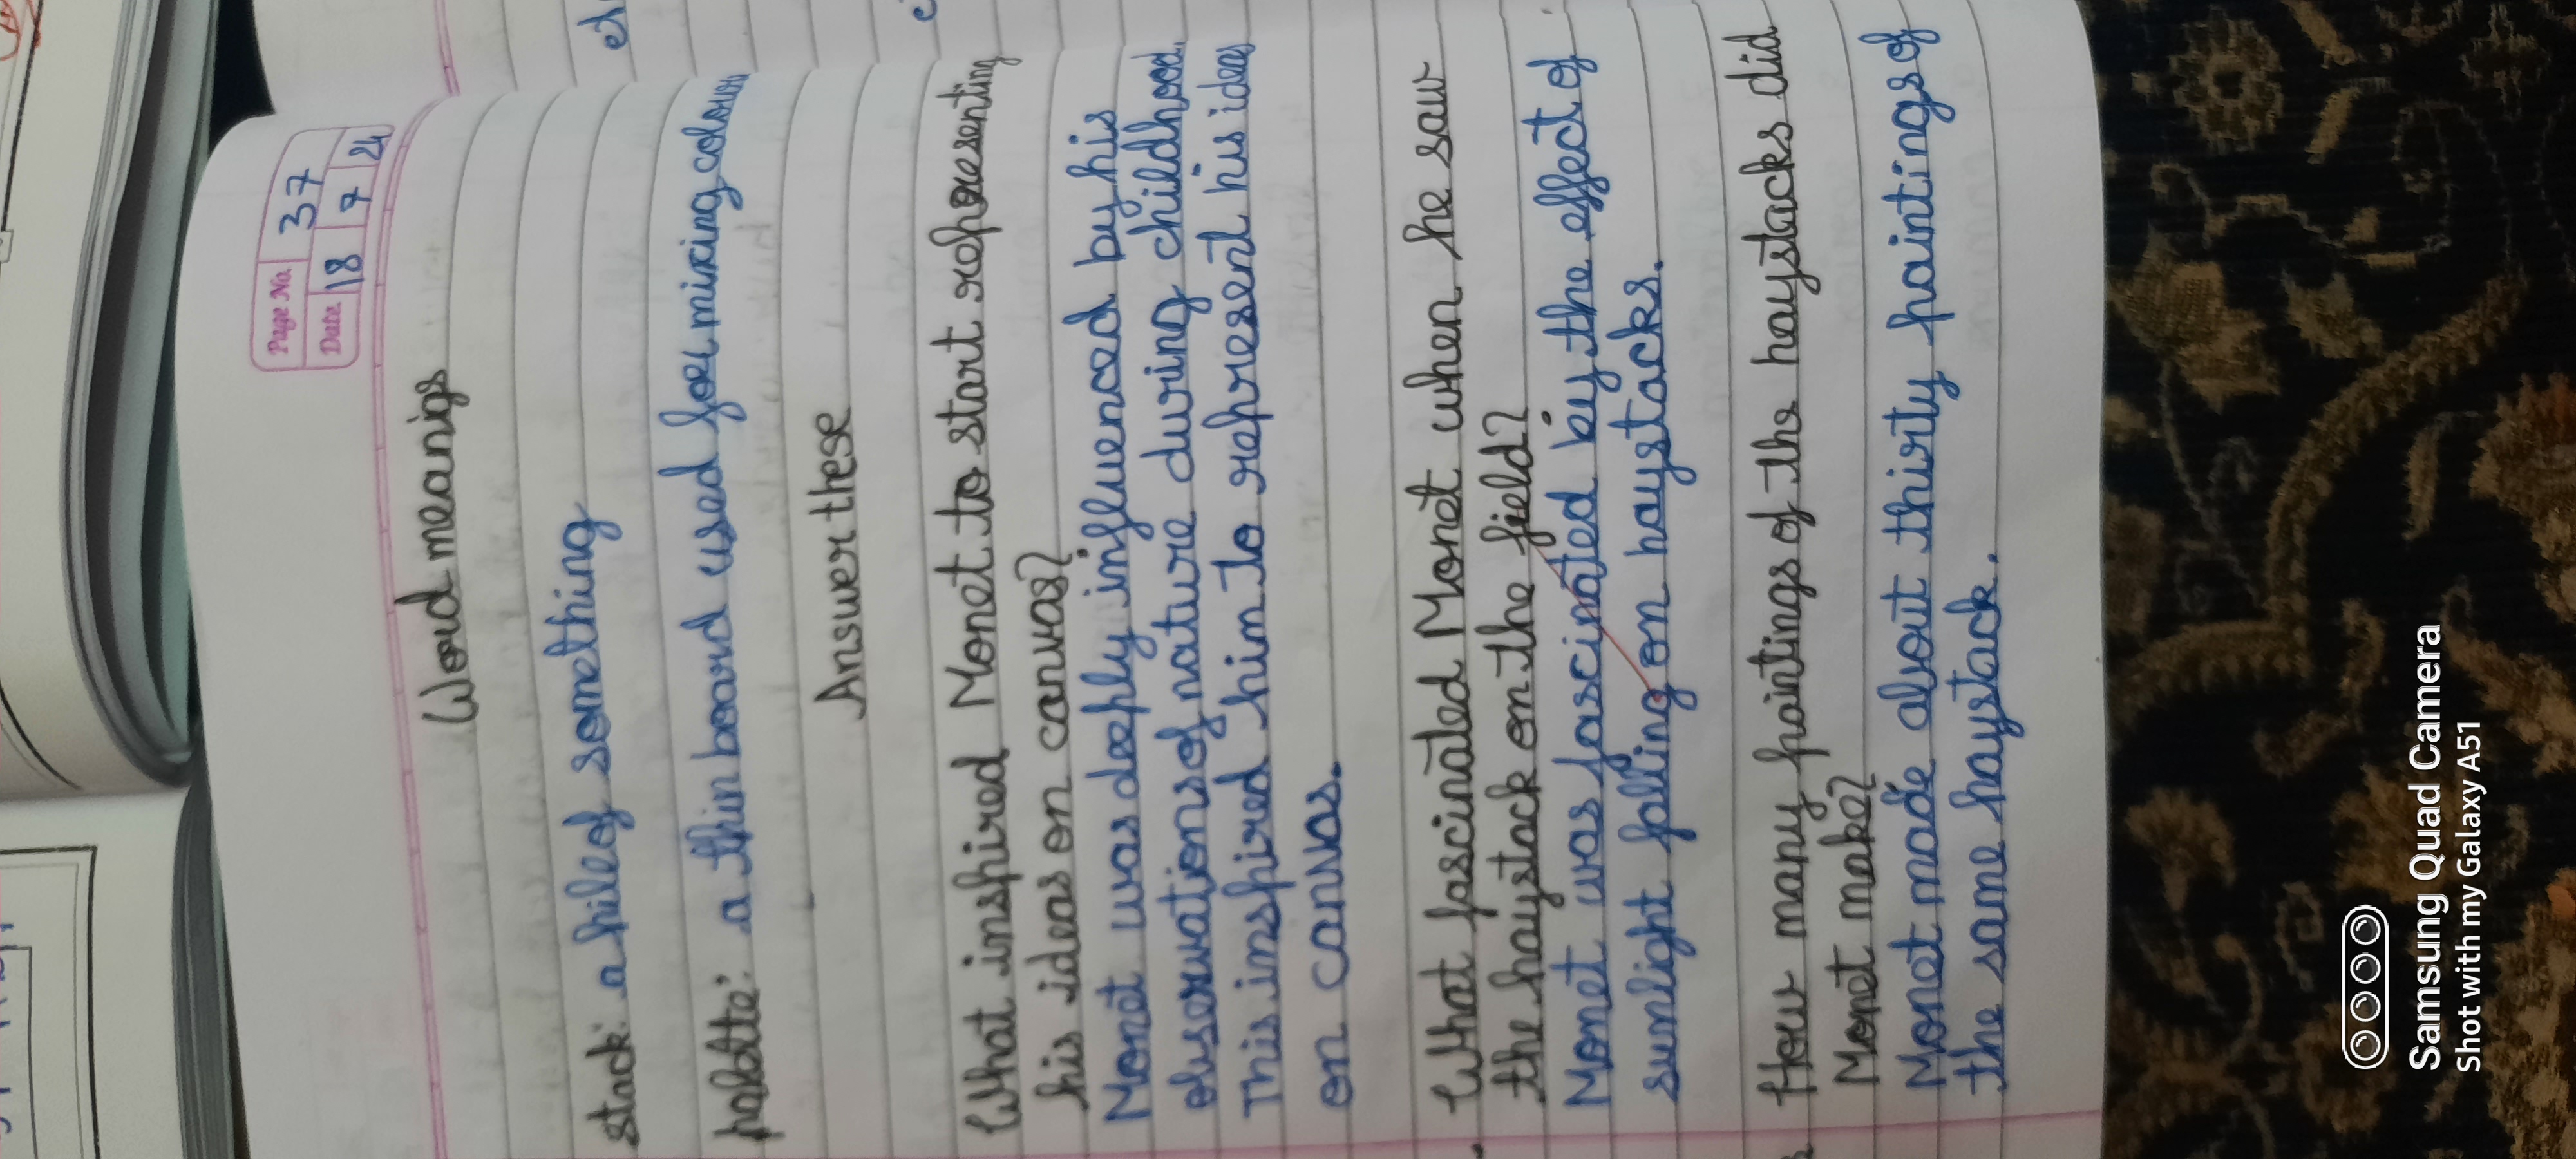 Page No. 37
Date 18 7 24
Word meanigs
stack: a pile of something
palette: a thin board used for mixing colours
Answer these
What inspired Monet to start representing
his ideas on canvas?
Monet was deeply influenced by his
observations of nature during childhood.
This inspired him to represent his ideas
on canvas.
What fascinated Monet when he saw
the haystack on the field?
Monet was fascinated by the effect of
sunlight falling on haystacks.
How many paintings of the haystacks did
Monet make?
Monet made about thirty paintings of
the same haystack.
Samsung Quad Camera
Shot with my Galaxy A51